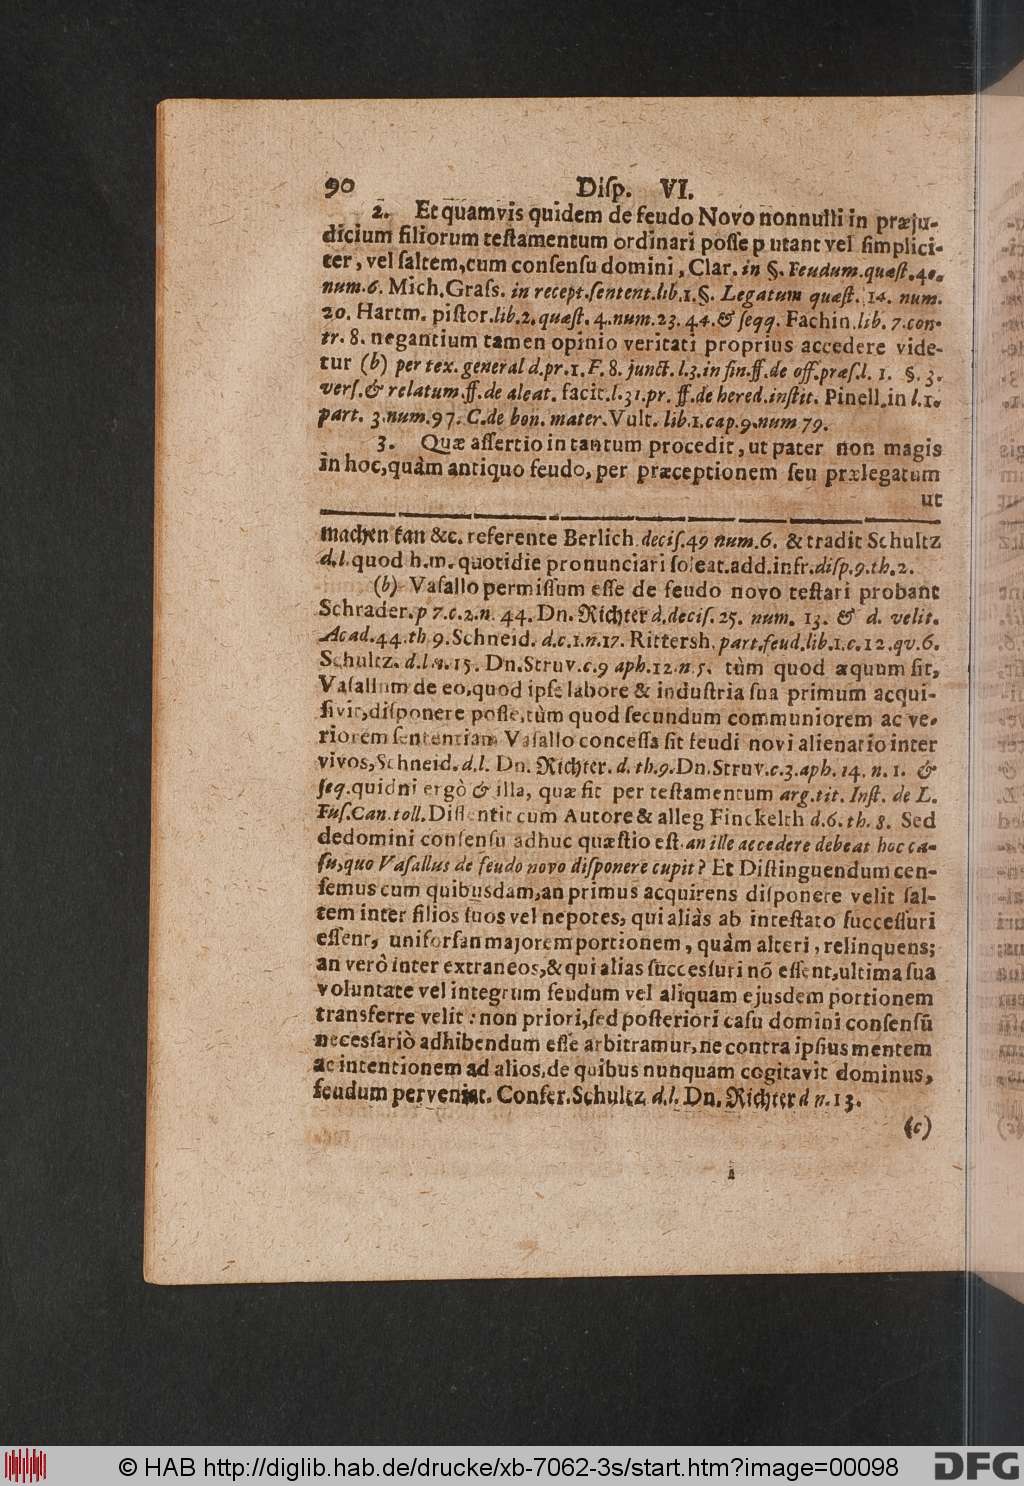 90 Diſp. VI.
2. Et quamvis quidem de feudo Novo nonnulli in præju-
dicium filiorum teſtamentum ordinari poſſe putant vel ſimplici-
ter, vel ſaltem, cum conſenſu domini, Clar. in §. Feudum. quæſt. 40.
num. 6. Mich. Graſs. in recept. ſentent. lib. 1. §. Legatum quæſt. 14. num.
20. Hartm. piſtor. lib. 2. quæſt. 4. num. 23. 44. & ſeqq. Fachin. lib. 7. con-
tr. 8. negantium tamen opinio veritati proprius accedere vide-
tur (b) per tex. general d. pr. 1. F. 8. junct. l. 3. in fin. ff. de off. præſ. l. 1. §. 3.
verſ. & relatum. ff. de aleat. facit. l. 31. pr. ff. de hered. inſtit. Pinell. in l. 1.
part. 3. num. 97. C. de bon. mater. Vult. lib. 1. cap. 9. num 79.
3. Quæ aſſertio in tantum procedit, ut pater non magis
in hoc, quàm antiquo feudo, per præceptionem ſeu prælegatum
ut
machen kan &c. referente Berlich. deciſ. 49 num. 6. & tradit Schultz
d. l. quod h. m. quotidie pronunciari ſoleat. add. infr. diſp. 9. th. 2.
(b) Vaſallo permiſſum eſſe de feudo novo teſtari probant
Schrader. p 7. c. 2. n. 44. Dn. Richter d. deciſ. 25. num. 13. & d. velit.
Acad. 44. th 9. Schneid. d. c. 1. n. 17. Rittersh. part. feud. lib. 1. c. 12. qv. 6.
Schultz. d. l. n. 15. Dn. Struv. c. 9 aph. 12. n. 5. tùm quod æquum ſit,
Vaſallum de eo, quod ipſe labore & induſtria ſua primum acqui-
ſivit, diſponere poſſe, tùm quod ſecundum communiorem ac ve-
riorem ſententiam Vaſallo conceſſa ſit feudi novi alienatio inter
vivos, Schneid. d. l. Dn. Richter. d. th. 9. Dn. Struv. c. 3. aph. 14. n. 1. &
ſeq. quidni ergò & illa, quæ fit per teſtamentum arg. tit. Inſt. de L.
Fuſ. Can. toll. Diſſentit cum Autore & alleg Finckelth d. 6. th. 8. Sed
de domini conſenſu adhuc quæſtio eſt. an ille accedere debeat hoc ca-
ſu, quo Vaſallus de feudo novo diſponere cupit? Et Diſtinguendum cen-
ſemus cum quibusdam, an primus acquirens diſponere velit ſal-
tem inter filios ſuos vel nepotes, qui aliàs ab inteſtato ſucceſſuri
eſſent, uni forſan majorem portionem, quàm alteri, relinquens;
an verò inter extraneos, & qui alias ſucceſſuri nō eſſent, ultima ſua
voluntate vel integrum feudum vel aliquam ejusdem portionem
transferre velit: non priori, ſed poſteriori caſu domini conſenſū
neceſſariò adhibendum eſſe arbitramur, ne contra ipſius mentem
ac intentionem ad alios, de quibus nunquam cogitavit dominus,
feudum perveniat. Confer. Schultz d. l. Dn. Richter d n. 13.
(c)
© HAB http://diglib.hab.de/drucke/xb-7062-3s/start.htm?image=00098
DFG